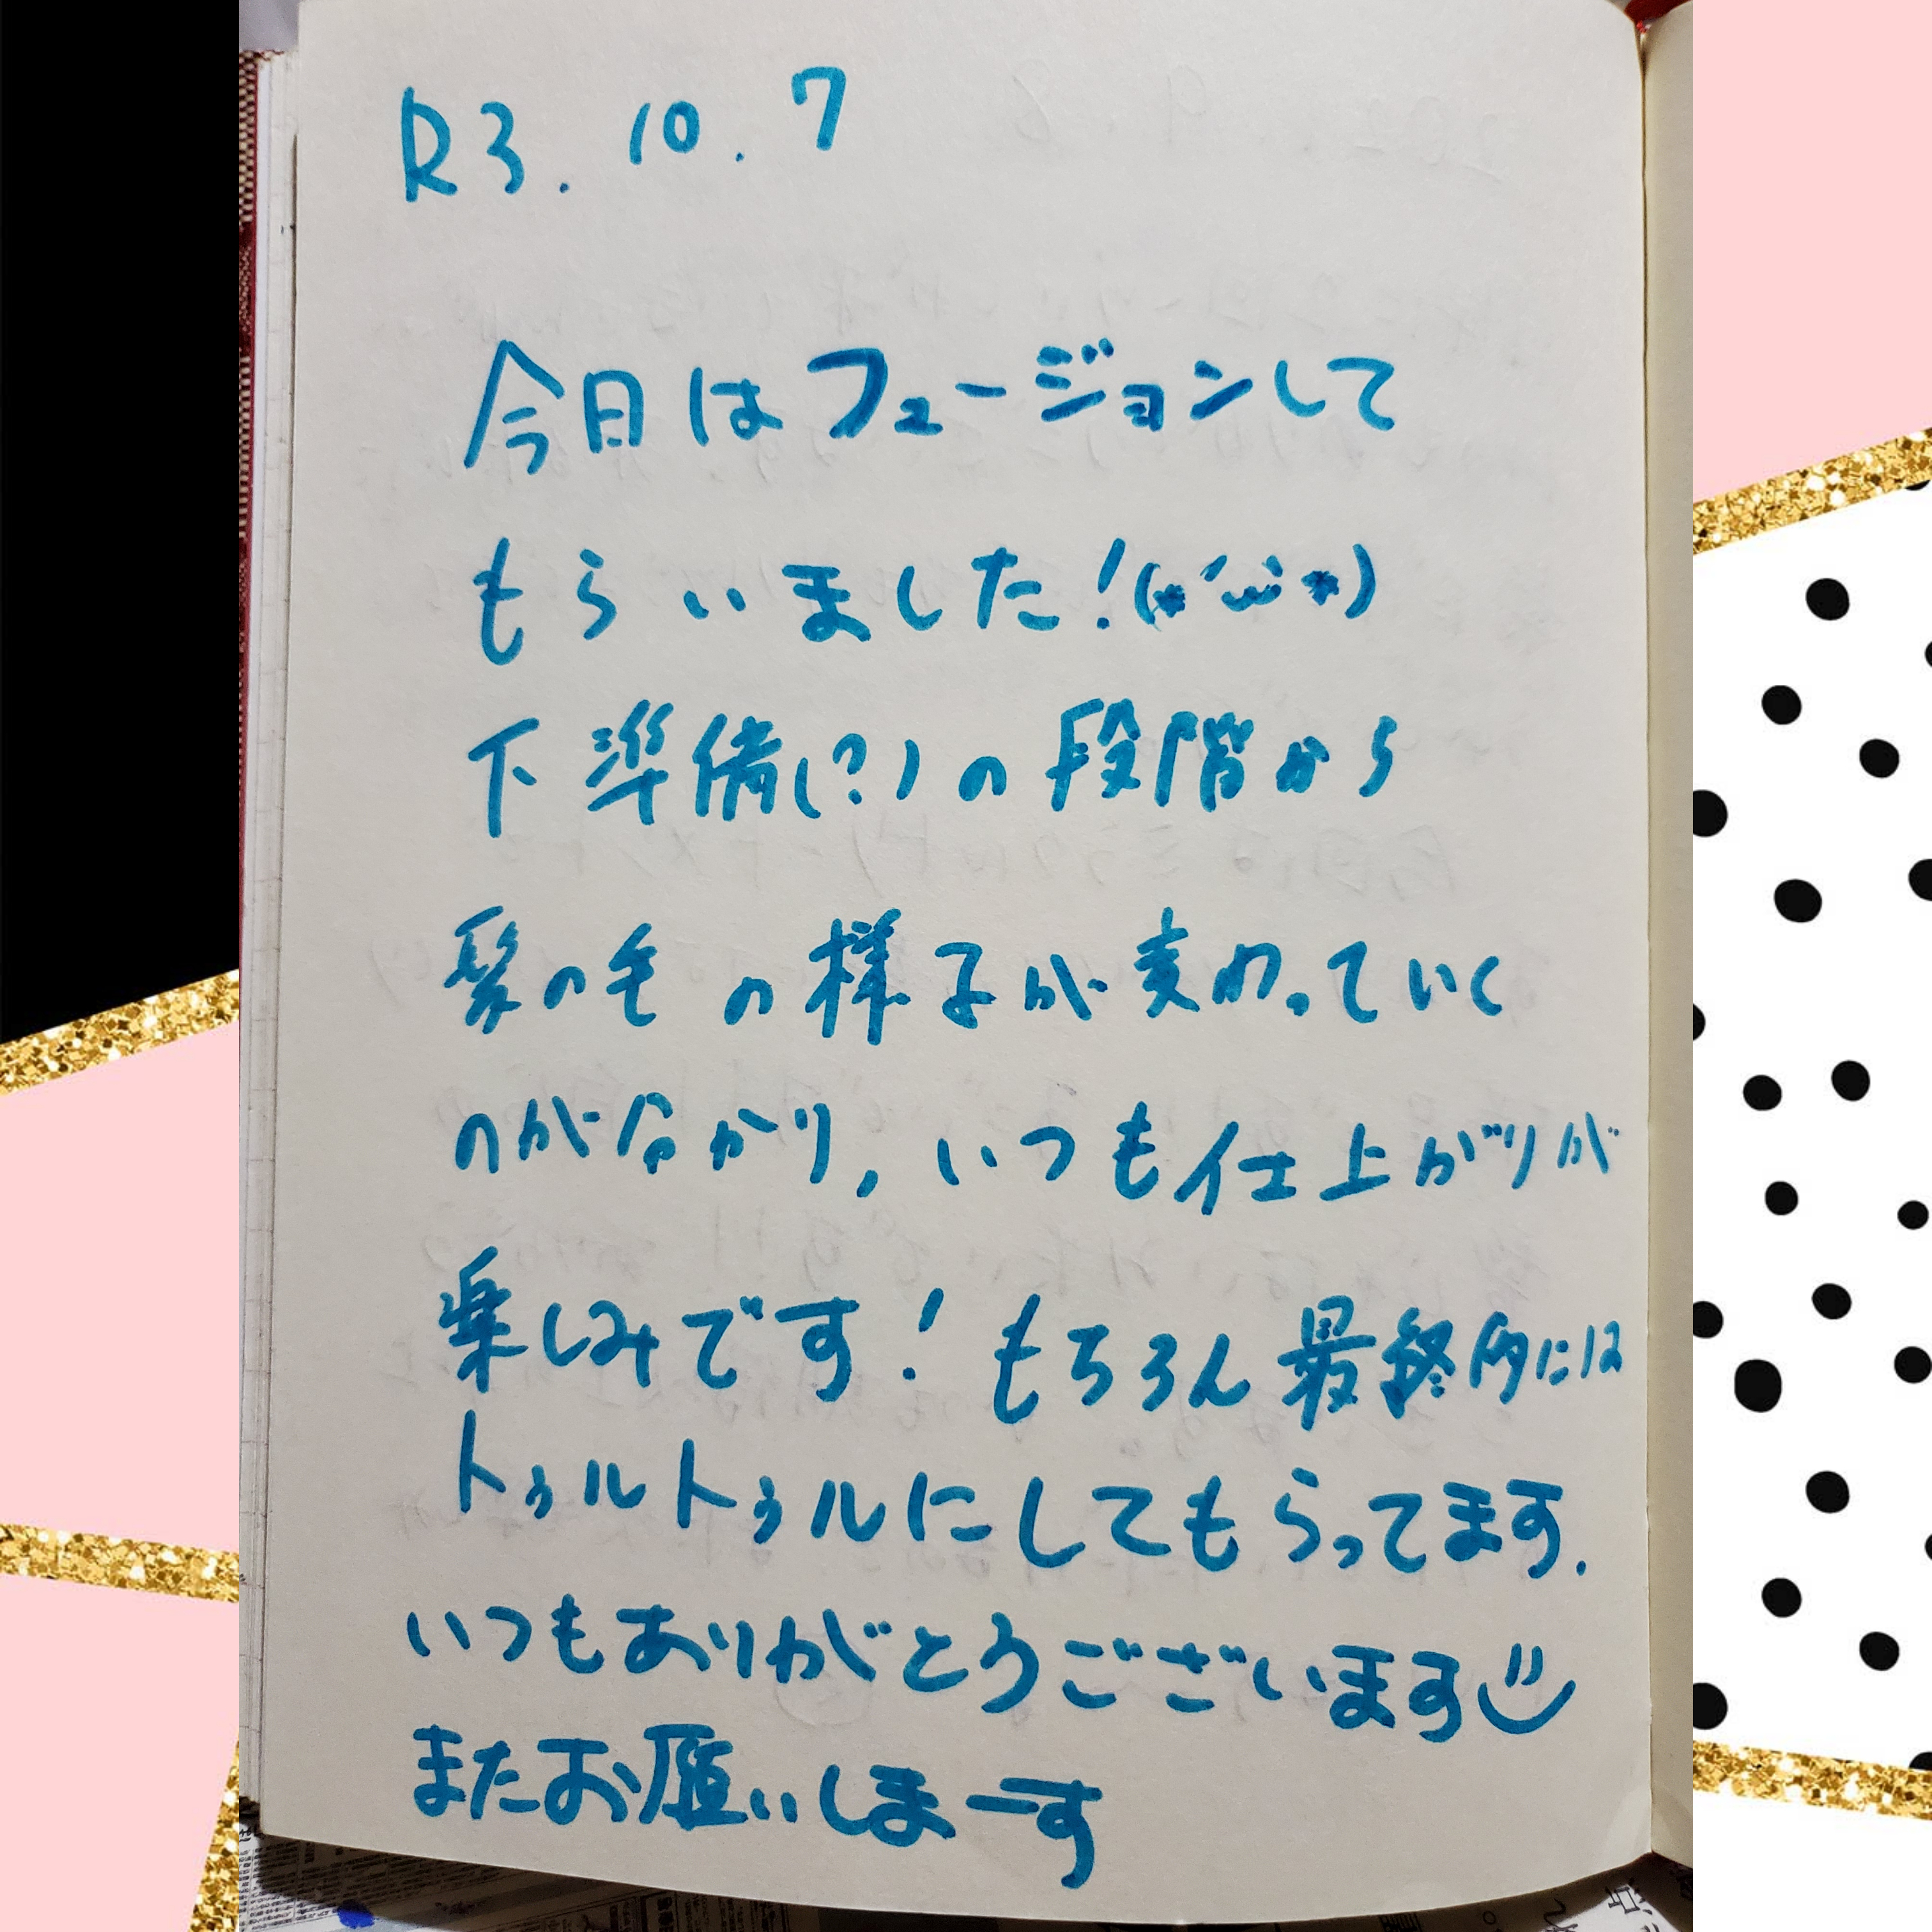 R3. 10. 7
今日はフュージョンして
もらいました!(*´ω`*)
下準備(?)の段階から
髪の毛の様子が変わっていく
のが分かり, いつも仕上がりが
楽しみです! もちろん最終的には
トゥルトゥルにしてもらってます.
いつもありがとうございます
またお願いしまーす